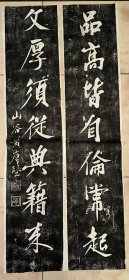 品高皆自倫常起
文厚須從典籍來
山谷